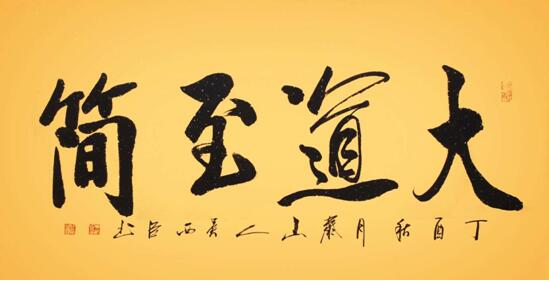 大道至简
丁酉秋月山人西臣书